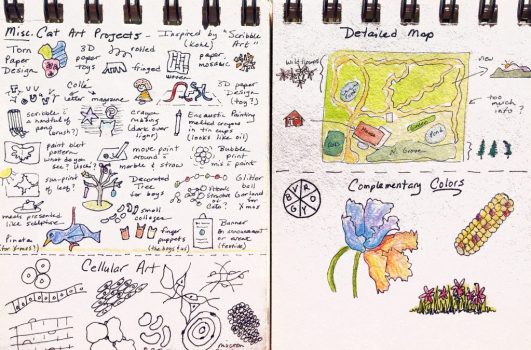 Misc. Cat Art Projects - Inspired by "Scribble Art"
(Kohl)
Torn Paper Design
3D paper toys
rolled
fringed
woven
paper mosaic
letter
magazine
3D paper Design (toy?)
scribble i a handful of pens
brush?)
crayon
(dark over light)
Encaustic Painting
melted crayons
in tin cups
(looks like oil)
paint blot patterns
what do you see?
move paint around i
marble & straw
Bubble print
mix i paint
sun-print of leaf?
Decorated Tree
for boys
Glitter ball
Garland for Xmas
meals presented like sculpture
small collages
Piñata
(for Xmas?)
finger puppets
(the boys & us)
Banner
announcement
(textile)
Cellular Art
Detailed Map
wildflowers
view
House
Pond
N
Grove
too much info?
Complementary Colors
B V R O Y G